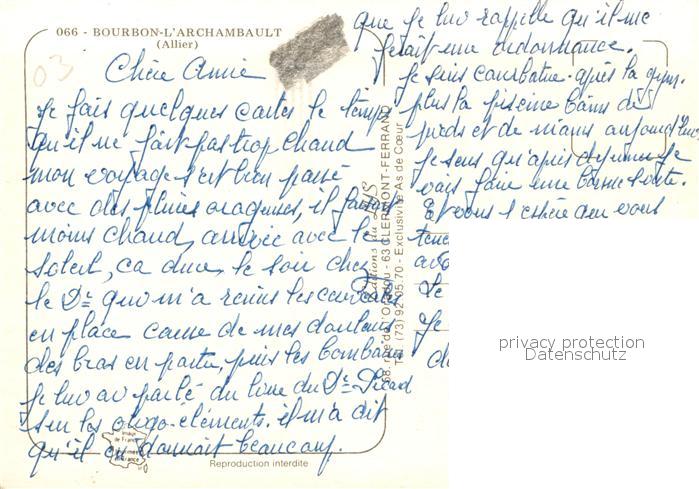 066 - BOURBON-L'ARCHAMBAULT
(Allier)
03
Chère Annie
Je fais quelques cartes le temps
qu'il ne fait pas trop chaud
mon voyage s'est bien passé
avec des pluies orageuses, il faisait
moins chaud, arrivée avec le
soleil, ça dure, le soir chez
le Dr qui m'a remis les cervicales
en place cause de mes douleurs
des bras en partie, puis les lombaires
Je lui av parlé du livre du Dr Picard
sur les oligo-éléments. il m'a dit
qu'il en donnait beaucoup.
que je lui rappelle qu'il me
ferait une ordonnance.
Je suis courbatue. après la gym.
plus la piscine bains de
pieds et de mains aujourd'hui
Je sens qu'après déjeuner je
vais faire une bonne sieste.
Et vous j'espère que vous
avo
Je
Je
Editions du LYS
68, rue de l'Oradou - 63 CLERMONT-FERRAND
Tél. (73) 92.05.70 - Exclusivité As de Cœur
Image de France
Reproduction interdite
privacy protection
Datenschutz